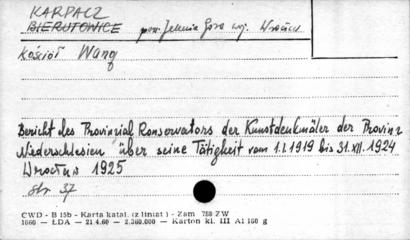 KARPACZ
BIERUTOWICE pow. Jelenia Góra woj. Wrocław
Kościół Wang
Bericht des Provinzial Konservators der Kunstdenkmäler der Provinz
Niederschlesien über seine Tätigkeit vom 1.I.1919 bis 31.XII.1924
Wrocław 1925
Str. 37
CWD - B 15b - Karta katal. (z liniat.) - Zam 788 ZW
1660 — ŁDA — 21.4.60 — 2.360.000 — Karton kl. III A1 160 g